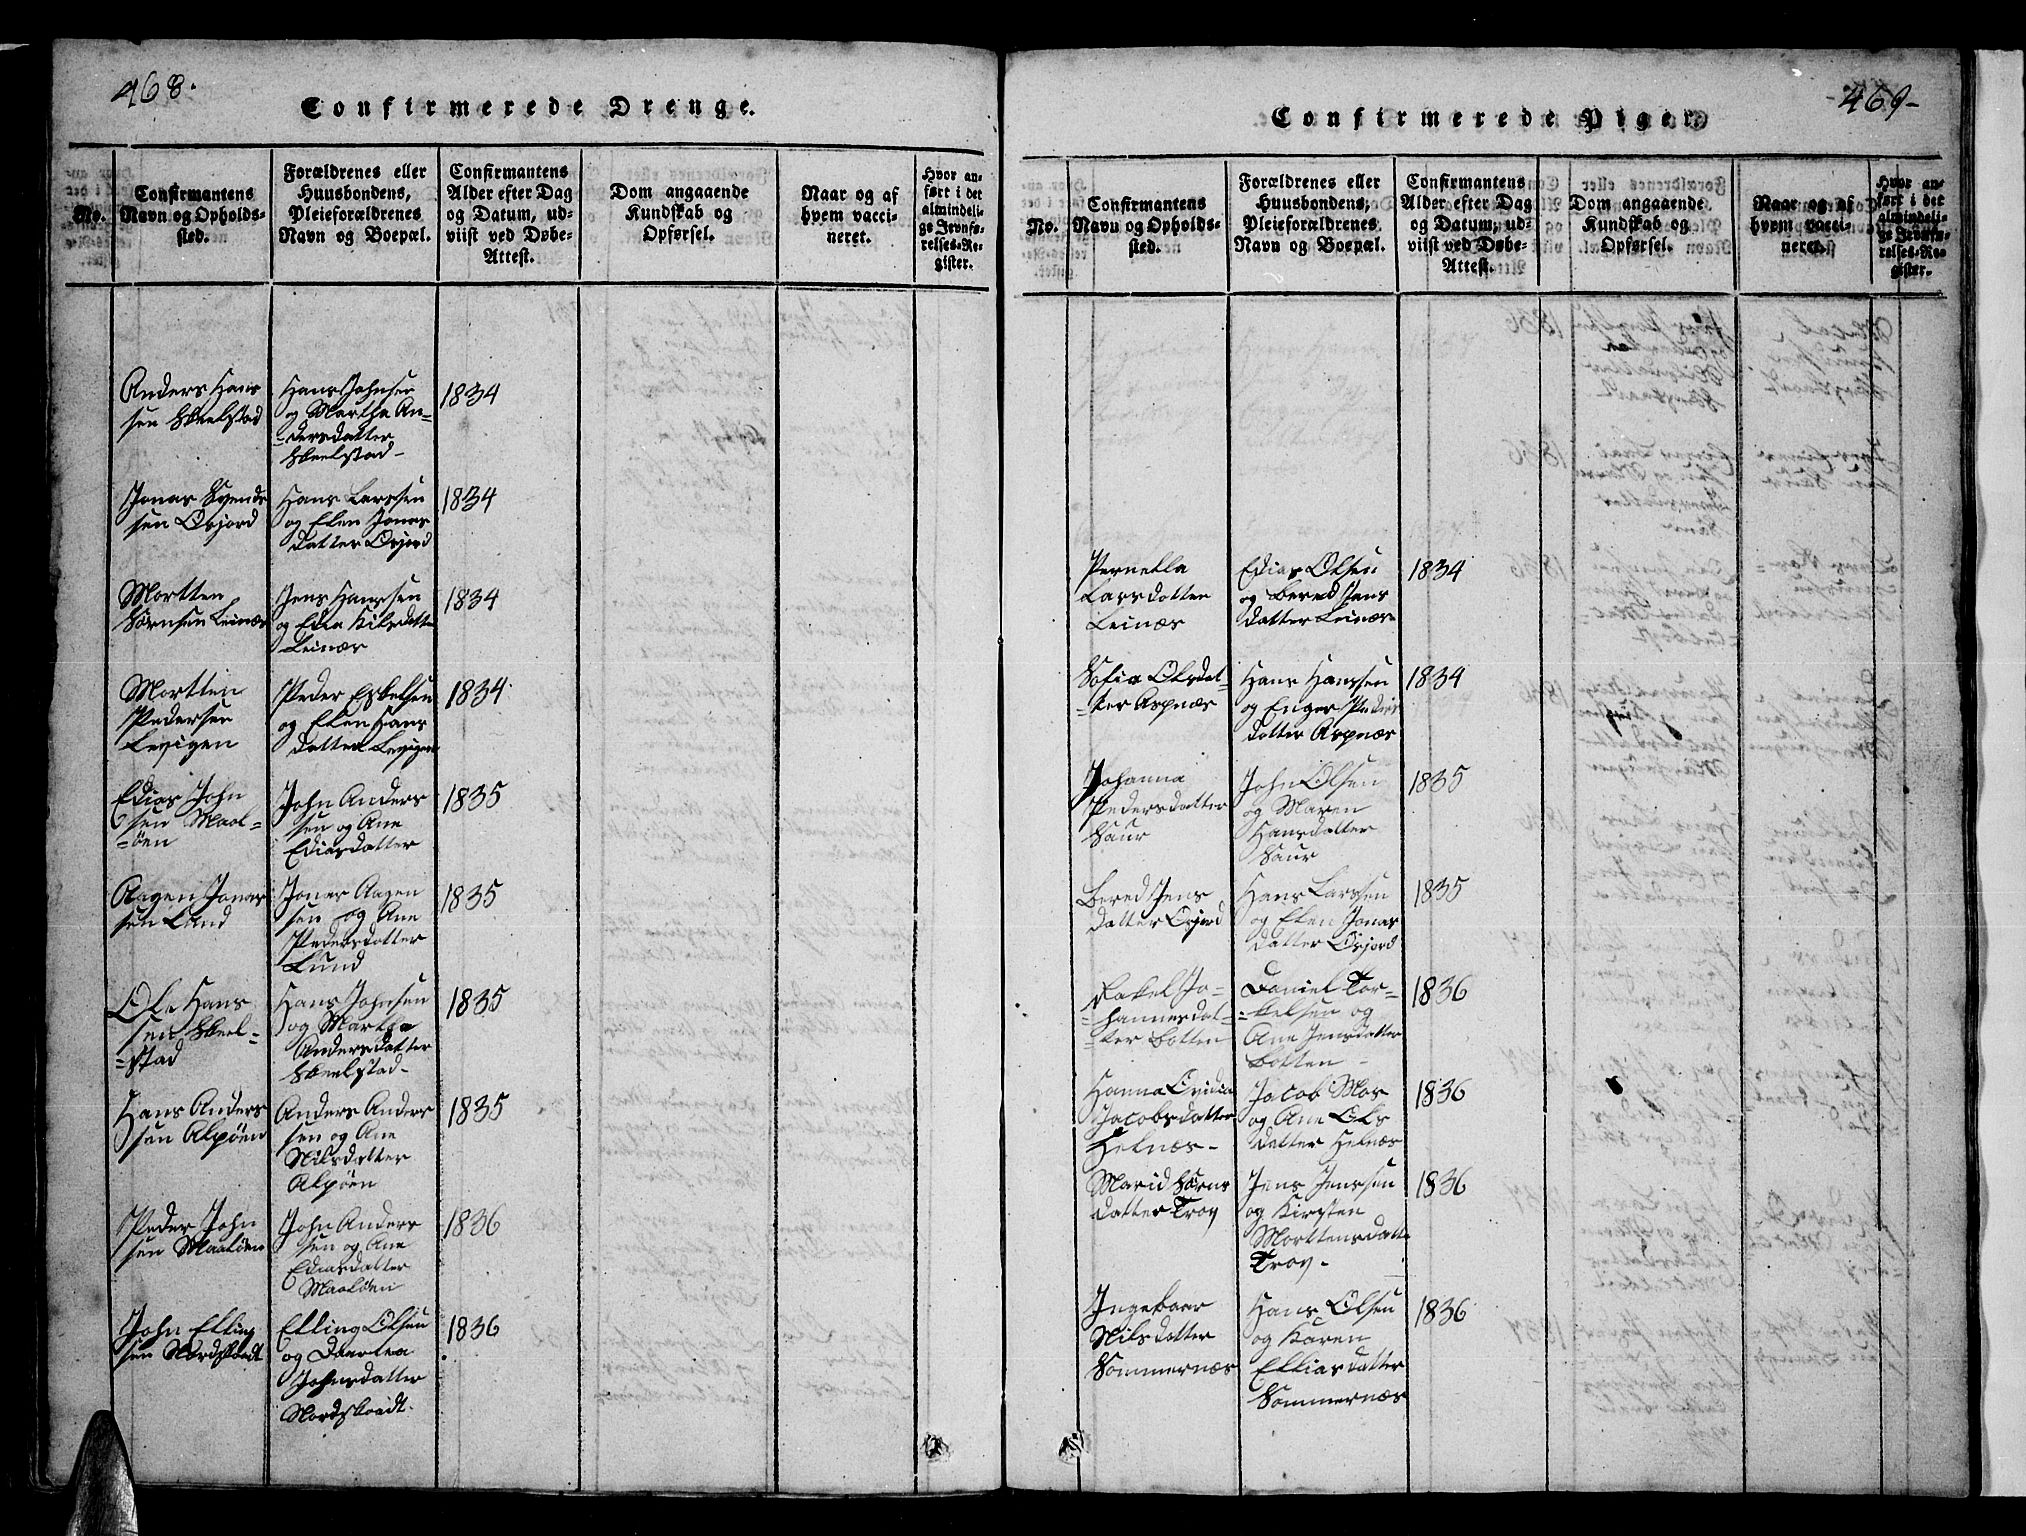 468.
Confirmerede Drenge.
No.
Confirmantens
Navn og Opholds-
sted.
Forældrenes eller
Huusbondens,
Pleieforældrenes
Navn og Boepæl.
Confirmantens
Alder efter Dag
og Datum, ud-
viist ved Døbe-
Attest.
Dom angaaende
Kundskab og
Opførsel.
Naar og af
hvem vacci-
neret.
Hvor an-
ført i det
almindeli-
ge Jevnfø-
relses-Re-
gister.
Anders Hans
sen Skeelstad
Hans Johnsen
og Martha An-
-dersdatter
Skeelstad-
1834
Jonas Svends
sen Oxjord
Hans Larssen
og Elen Jonas
datter Oxjord
1834
Mortten
Sørnsen Leinæs
Jens Hanssen
og Edia Nilsdatte
Leinæs
1834
Mortten
Pedersen
Levigen
Peder Esbelsen
og Elen Hans
datter Levigen
1834.
Edias John
sen Maal-
-öen
John Anders
sen og Ane
Ediasdatter
1835
Aagen Jonas
sen Lund
Jonas Aagen
sen og Ane
Pedersdatter
Lund
1835
Ole Hans
sen Skeel-
-stad
Hans Johnsen
og Martha
Andersdatter
Skeelstad-
1835
Hans Anders
sen Alpöen
Anders Anders
sen og Ane
Nilsdatter
Alpöen
1835
Peder John
sen Maalöen
John Anders
sen og Ane
Ediasdatter
Maalöen
1836
John Elling
sen Nordskoadt
Elling Olsen
og Daartea
Johnsdatter
Nordskoadt.
1836
469-
Confirmerede Piger.
No.
Confirmantens
Navn og Opholds-
sted.
Forældrenes eller
Huusbondens,
Pleieforældrenes
Navn og Boepæl.
Confirmantens
Alder efter Dag
og Datum, ud-
viist ved Døbe-
Attest.
Dom angaaende
Kundskab og
Opførsel.
Naar og af
hvem vacci-
neret.
Hvor an-
ført i det
almindeli-
ge Jevnfø-
relses-Re-
gister.
Pernella
Larsdatter
Leinæs
Edias Olsen
og Bered Hans
datter Leinæs
1834
Sofia Olsdat-
-ter Aspnæs
Hans Hanssen
og Enger Peders
datter Aspnæs
1834
Johanna
Pedersdatter
Saur
John Olsen
og Maren
Hansdatter
Saur
1835
Bered Jens
datter Oxjord
Hans Larssen
og Elen Jonas
datter Oxjord
1835
Rakel Jo-
-hannesdat-
-ter Botten
Daniel Tor-
-kelsen og
Ane Jensdatter
Botten -
1836
Hanna Ovidia
Jacobsdatter
Helnæs-
Jacob Mos
og Ane Ols
datter Helnæs
1836
Marid Sørns
datter Trov
Jens Jenssen
og Kirsten
Morttensdatte
Trov-
1836
Ingebaar
Nilsdatter
Sommernæs
Hans Olsen
og Karen
Elliasdatter
Sommernæs
1836